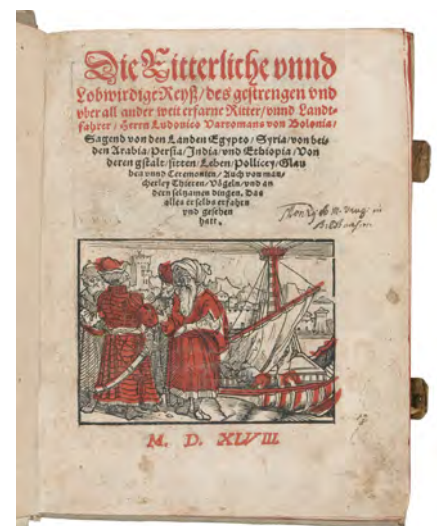 Die Ritterliche vnnd
Lobwirdige Reyß/ des gestrengen vnd
vber all ander weit erfarne Ritter/ vnnd Landt-
fahrer/ Herrn Ludouico Vartomans von Bolonia/
Sagend von den Landen Egypto/ Syria/ von bei-
den Arabia/ Persia/ India/ vnd Ethiopia/ Von
deren gstalt/ sitten/ Leben/ Pollicey/ Glau
ben vnnd Ceremonien/ Auch von man-
cherley Thieren/ Vögeln/ vnd an
dern seltzamen dingen. Das
alles er selbs erfahren
vnd gesehen
hatt.
M. D. XLVIII